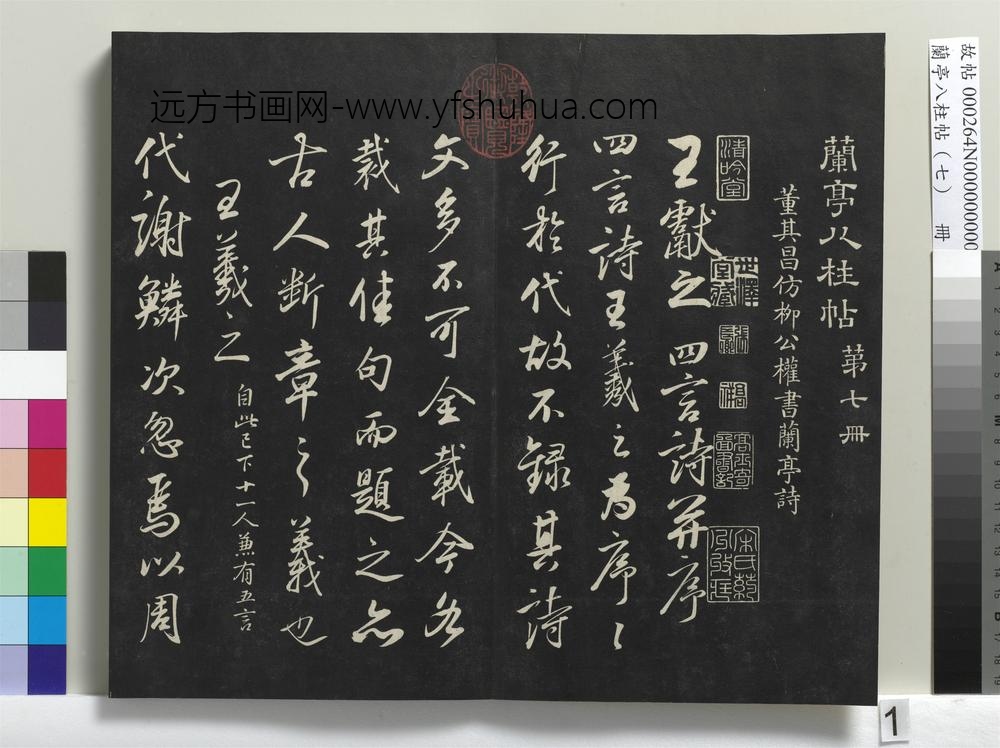 蘭亭八柱帖 第七冊
董其昌仿柳公權書蘭亭詩
清吟堂
王獻之四言詩并序
四言詩王羲之為序〻
行於代故不錄其詩
文多不可全載今各
裁其佳句而題之亦
古人断章之義也
王羲之 自此已下十一人兼有五言
代謝鱗次忽焉以周
远方书画网-www.yfshuhua.com
故帖 000264N000000000
蘭亭八柱帖(七) 冊
1